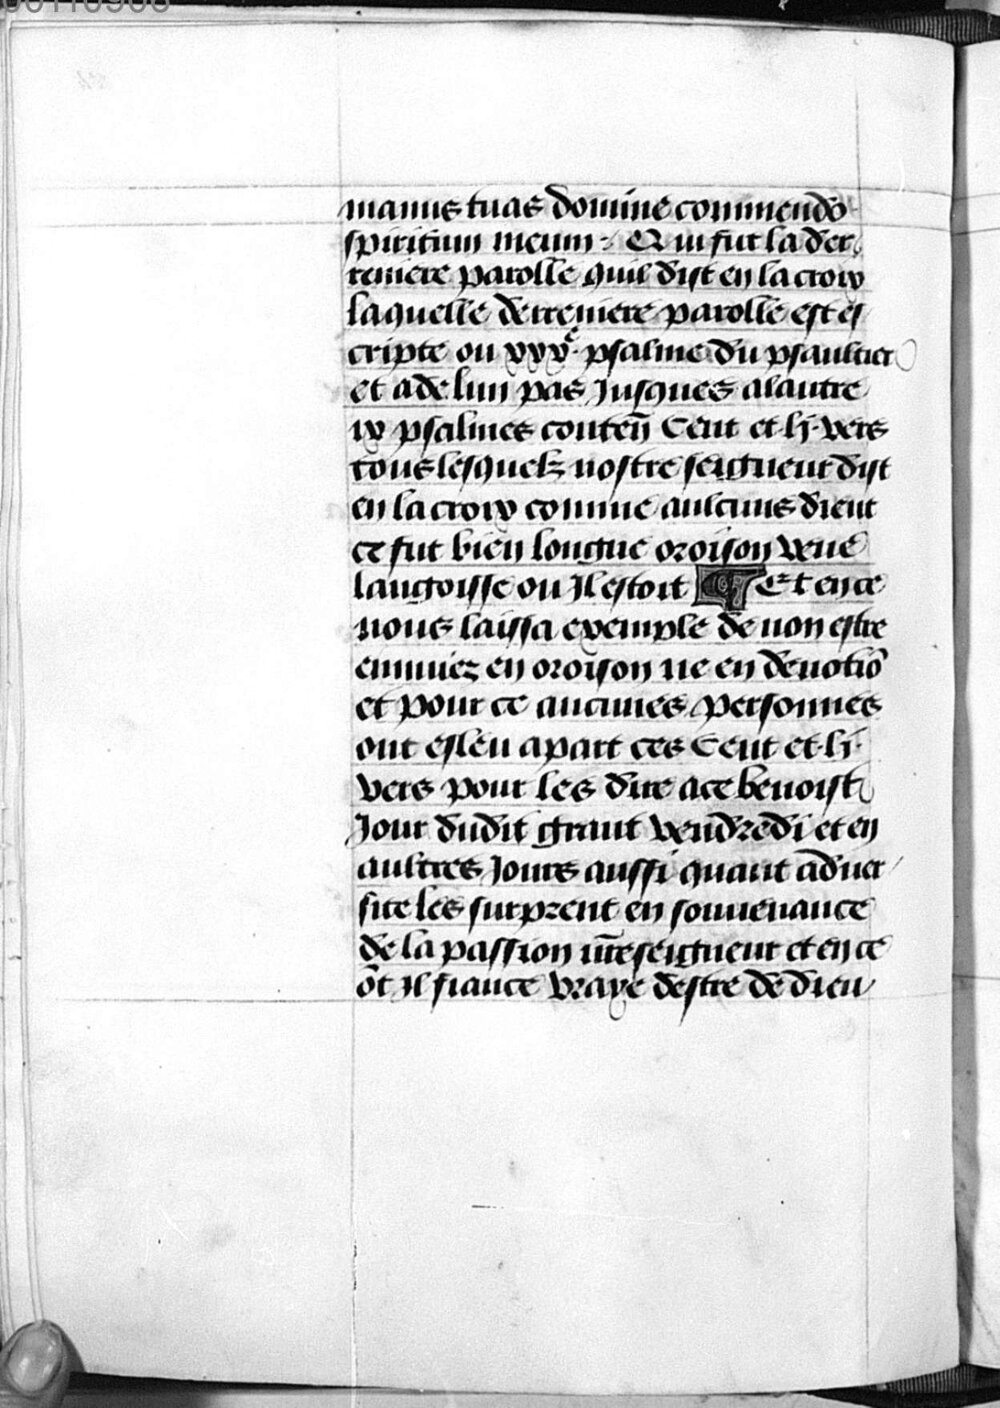 manus tuas domine commendo
spiritum meum : Qui fut la der
reniere parolle quil dist en la croix
laquelle derreniere parolle est es
cripte ou xxxe psalme du psaultier
et a de lun pas Jusques a lautre
ix psalmes conteñ Cent et lj. vers
tous lesquelz nostre seigneur dist
en la croix comme aulcuns dient
ce fut bien longue oroison veue
langoisse ou Il estoit ¶ Et en ce
nous laissa exemple de non estre
ennuiez en oroison ne en deuotiō
et pour ce aucunes personnes
ont esleu apart ces Cent et lj.
vers pour les dire a ce benoist
Jour dudit grant vendredi et en
aultres Jours aussi quant aduer
site les surprent en souuenance
de la passion nr̄eseigneur et en ce
ōt Il fiance vraye destre de dieu